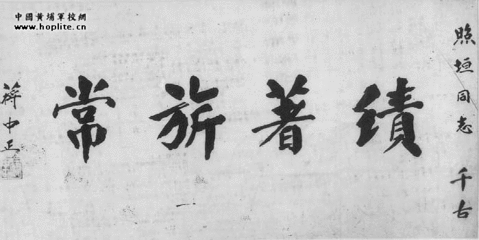 中國黃埔軍校網
www.hoplite.cn
照垣同志 千古
績著旂常
蔣中正